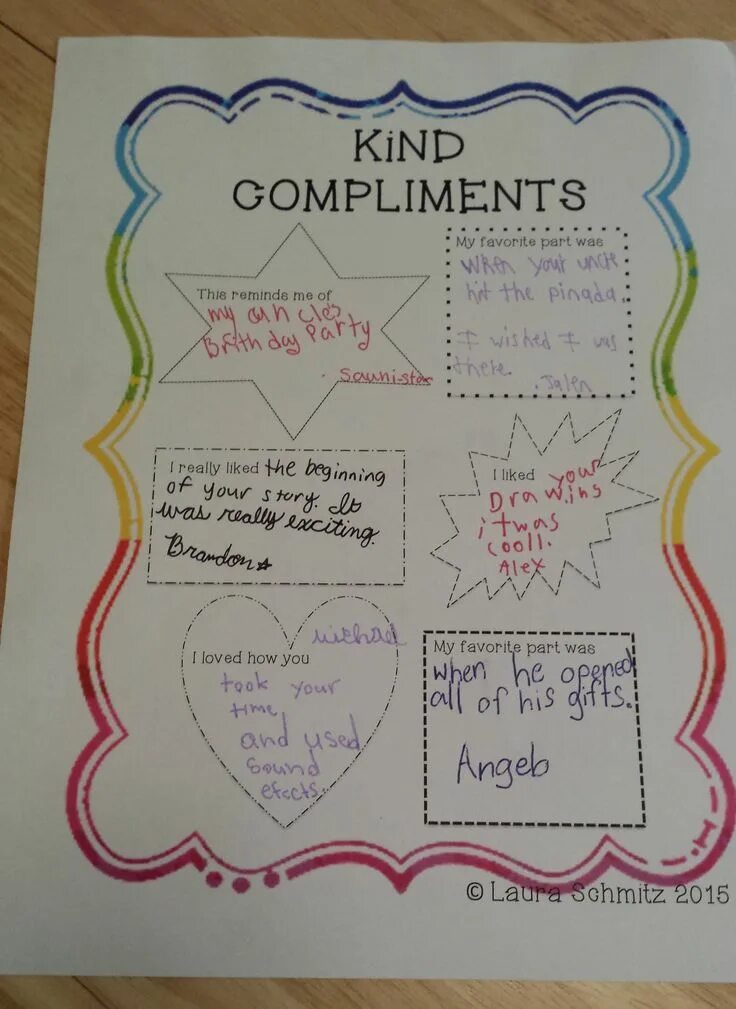 KiND
COMPLIMENTS
This reminds me of
my uncles
Brithday Party
My favorite part was
When your uncle
hit the pinada.
I wished I was
there.
. Jalen
I really liked the beginning
of your story. It
was really exciting.
Brandon
I liked your
Drawins
itwas
cooll.
Alex
michael
I loved how you
took your
time,
and used
sound
efects.
My favorite part was
when he opened
all of his gifts.
© Laura Schmitz 2015